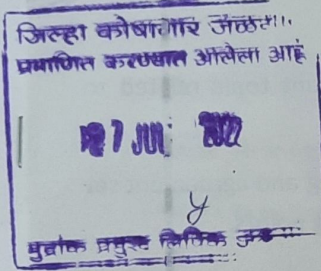 जिल्हा कोषागार
प्रमाणित करण्यात आलेला आहे
7 JUL 2022
मुद्रांक प्रमुख लिपिक